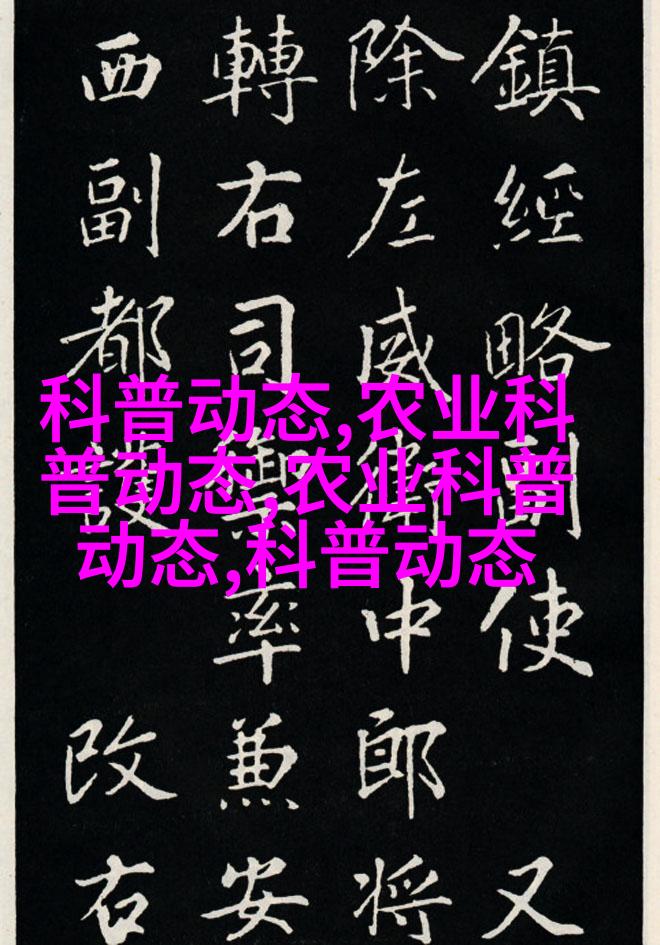 鎮經略副使 又
除左威衛中郎將
轉右司禦率兼安
西副都護 改右
科普动态,农业科
普动态,农业科普
动态,科普动态